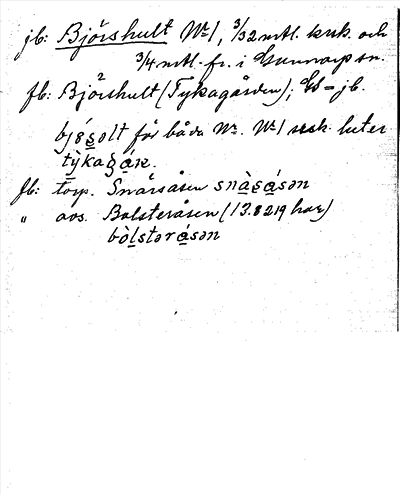 jb: Björshult No 1, 3/32 mtl. krsk. och
3/4 mtl. fr. i Gunnarp sn.
fb: Björshult (Tykagården); GS = jb.
bjó̤solt för båda No. No 1 ssk. heter
tỳkagán.
fb: torp. Snåråsen snàsásən
" avs. Bolsteråsen (13.8219 har)
bòlstərásən